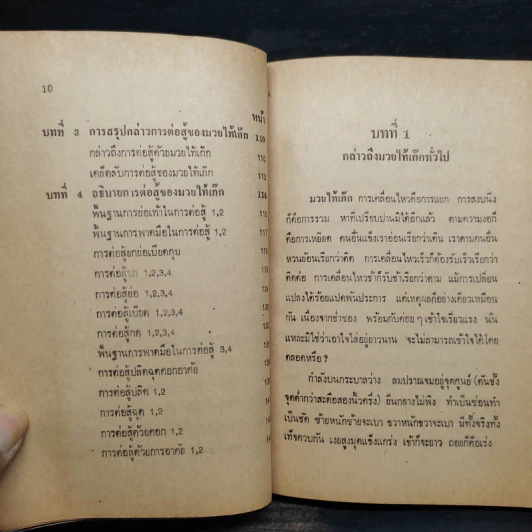 10
หน้า
บทที่ 3 การสรุปกล่าวการต่อสู้ของมวยไท้เก๊ก 110
กล่าวถึงการต่อสู้ด้วยมวยไท้เก๊ก 110
เคล็ดลับการต่อสู้ของมวยไท้เก๊ก
บทที่ 4 อธิบายการต่อสู้ของมวยไท้เก๊ก 114
พื้นฐานการย่อเท้าในการต่อสู้ 1,2
พื้นฐานการพาดมือในการต่อสู้ 1,2
การต่อสู้ยกย่อเบียดกุม
การต่อสู้ยก 1,2,3,4
การต่อสู้ย่อ 1,2,3,4
การต่อสู้เบียด 1,2,3,4
การต่อสู้กด 1,2,3,4
พื้นฐานการพาดมือในการต่อสู้ 3,4
การต่อสู้ปลิดฉุดศอกอาศัย
การต่อสู้ปลิด 1,2
การต่อสู้ฉุด 1,2
การต่อสู้ด้วยศอก 1,2
การต่อสู้ด้วยการอาศัย 1,2
บทที่ 1
กล่าวถึงมวยไท้เก๊กทั่วไป
มวยไท้เก๊ก การเคลื่อนไหวคือการแยก การสงบนิ่ง
ก็คือการรวม หาที่เปรียบปานมิได้อีกแล้ว ตามความงอก็
คือการเหยียด คนอื่นแข็งเราอ่อนเรียกว่าเดิน เราตามคนอื่น
หวนย้อนเรียกว่าติด การเคลื่อนไหวเร็วก็ต้องรับเร็วเรียกว่า
ติดต่อ การเคลื่อนไหวช้าก็รับช้าเรียกว่าตาม แม้การเปลี่ยน
แปลงได้ร้อยแปดพันประการ แต่เหตุผลก็อย่างเดียวเหมือน
กัน เนื่องจากช่ำชอง พร้อมกับค่อย ๆ เข้าใจเรี่ยวแรง นั่น
แหละมิใช่ว่าเอาใจใส่อยู่ยาวนาน จะไม่สามารถเข้าใจได้โดย
ตลอดหรือ ?
กำลังบนกระบาลว่าง ลมปราณจมอยู่จุดศูนย์ (ตันซั้ง
จุดต่ำกว่าสะดือสองนิ้วครึ่ง) ยืนกลางไม่พิง ทำเป็นซ่อนทำ
เป็นชัด ซ้ายหนักซ้ายจะเบา ขวาหนักขวาจะเบา มีทั้งจริงทั้ง
เท็จควบกัน เงยสูงมุดแข็งแกร่ง เข้าก็จะยาว ถอยก็คือเร่ง